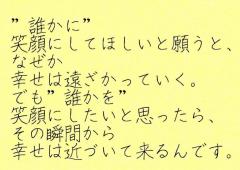 ”誰かに”
笑顔にしてほしいと願うと、
なぜか
幸せは遠ざかっていく。
でも”誰かを”
笑顔にしたいと思ったら、
その瞬間から
幸せは近づいて来るんです。